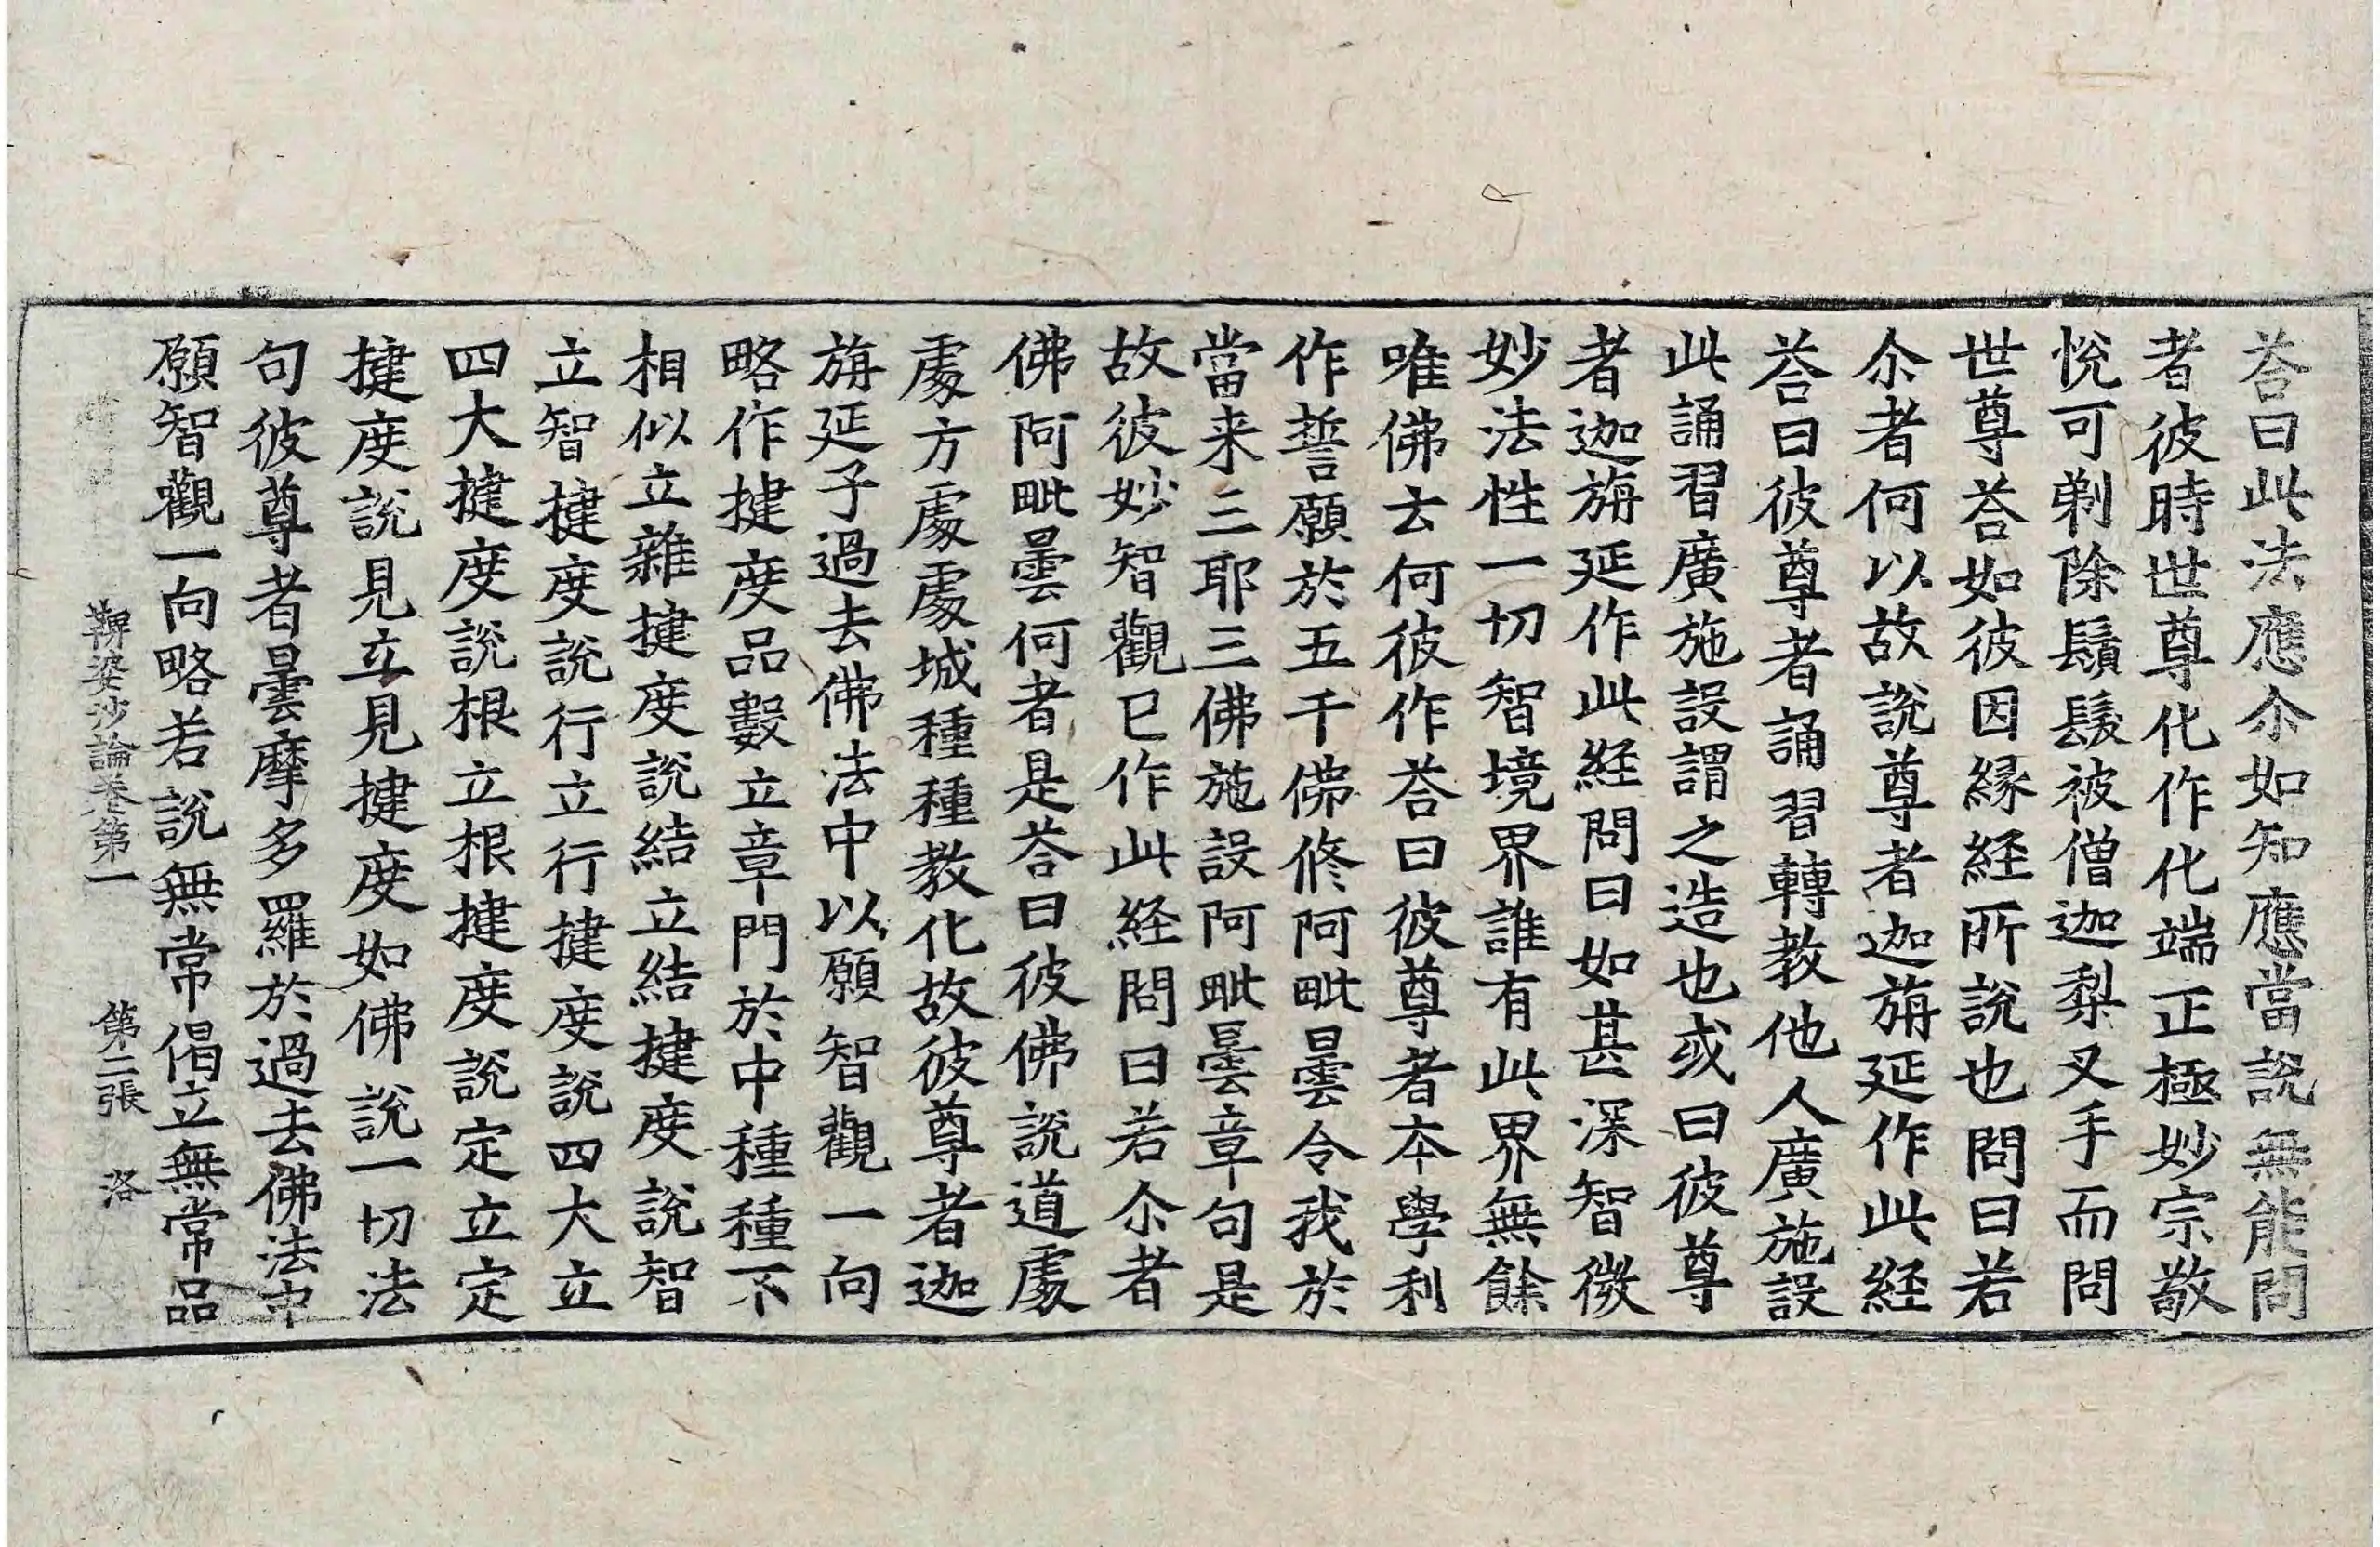 荅曰此法應尒如知應當說無能問
者彼時世尊化作化端正極妙宗敬
悅可剃除鬚髮被僧迦梨叉手而問
世尊荅如彼因縁経所說也問曰若
尒者何以故說尊者迦旃延作此経
荅曰彼尊者誦習轉教他人廣施設
此誦習廣施設謂之造也或曰彼尊
者迦旃延作此経問曰如甚深智微
妙法性一切智境界誰有此界無餘
唯佛去何彼作荅曰彼尊者本學利
作誓願於五千佛俢阿毗曇令我於
當来三耶三佛施設阿毗曇章句是
故彼妙智觀已作此経問曰若尒者
佛阿毗曇何者是荅曰彼佛說道處
處方處處城種種教化故彼尊者迦
旃延子過去佛法中以願智觀一向
略作揵度品數立章門於中種種不
相似立雜揵度說結立結揵度說智
立智揵度說行立行揵度說四大立
四大揵度說根立根揵度說定立定
揵度說見立見揵度如佛說一切法
句彼尊者曇摩多羅於過去佛法中
願智觀一向略若說無常偈立無常品
鞞婆沙論卷第一 第二張 洛